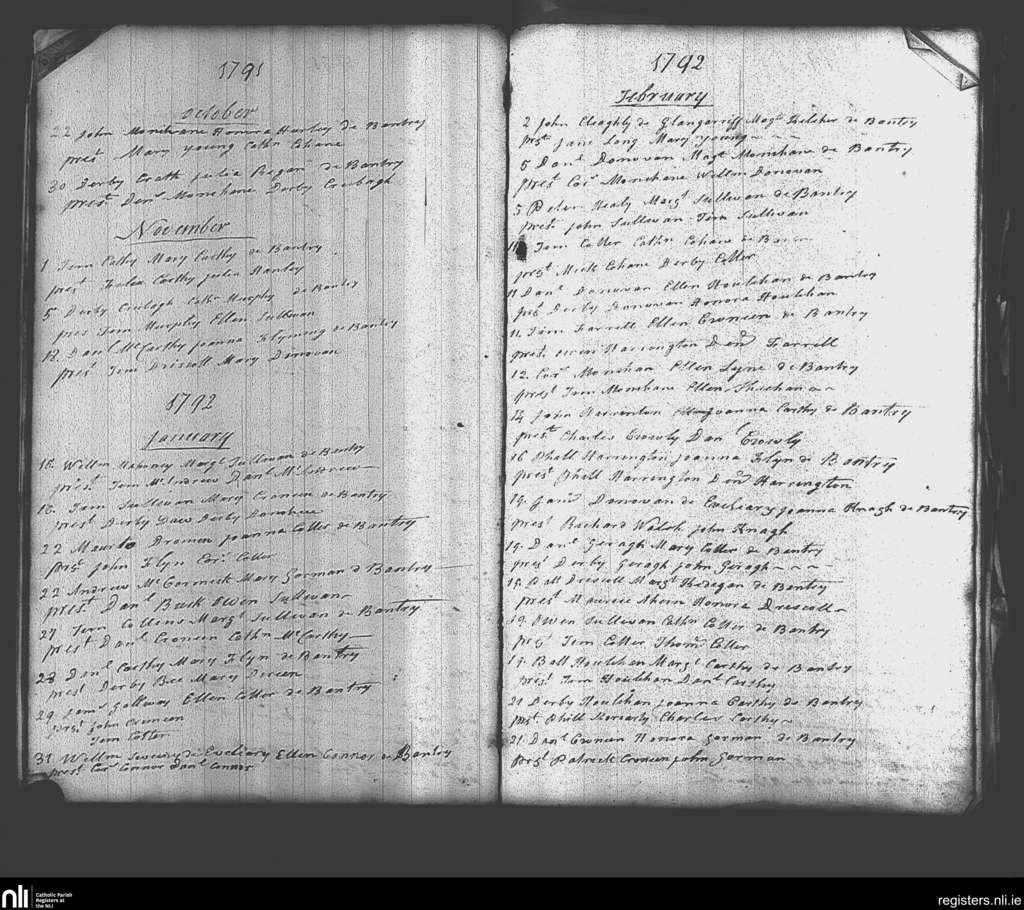 1791
October
22 John Monehane Honora Hurley de Bantry
prest Mary Young Cathn Cohane
30 Derby Crath Julia Regan de Bantry
prest Danl Monehane Derby Creebagh
November
1 Mary Carthy de Bantry
prest Carthy Julia Hanley
5 Derby Creebagh Cathn Murphy de Bantry
pres Tem Murphy Ellen Sullivan
13 Danl McCarthy Joanna de Bantry
prest Tem Driscoll Mary Donovan
1792
January
15. Willm Mahoney Margt Sullivan de Bantry
prest Tem McAndrew Danl McAndrew
16. Tem Sullivan Mary Croneen de Bantry
prest Derby Daw Derby Donohue
22 Joanna Cotter de Bantry
prest John Flyn Cotter
22 Andrew McCormick Mary Gorman d Bantry
prest Danl Buck Owen Sullivan
27 Tem Collens Margt Sullivan de Bantry
prest Danl Croneen Cathn McCarthy
28 Danl Carthy Mary Flyn de Bantry
prest Derby Bee Mary
29 Jams Gallway Ellen Cotter de Bantry
prst John Croneen
Tem Cotter
31 Willm de Eveliary Ellen Connor de Bantry
prest Cors Connor Danl Connor
1792
February
2 John de Glangarriff Magt de Bantry
prst Jane Long Mary Young
5 Danl Donovan Magt Monehane de Bantry
prest Cors Monehane Willm Donovan
5 Peter Healy Margt Sullivan de Bantry
prest John Sullivan Tem Sullivan
11 Tem Cotter Cathn Cohane de
prest Mick Cohane Derby Cotter
11 Danl Donovan Ellen Houlehan de Bantry
prst Derby Donovan Honora Houlehan
11. Tem Farrell Ellen Croneen de Bantry
prest. Owen Harrington Farrell
12. Cors Monehan Ellen Lyne de Bantry
prest Tem Monehane Ellen Sheehan
14 John Joanna Carthy de Bantry
prest Charles Crowly Danl Crowly
16 Phill Harrington Joanna Flyn de Bantry
prest Phill Harrington Harrington
19. Donovan de Eveliary Joanna Knagh de Bantry
prest Richard Walsh John Knagh
19. Danl Geragh Mary Cotter de Bantry
prest Derby Geragh John Geragh
19. Batt Drescoll Margt de Bantry
prest Maurice Ahern Honora Drescoll
19. Owen Sullivan Cathn Cotter de Bantry
prest Tem Cotter Thoms Cotter
19. Batt Houlehan Margt Carthy de Bantry
prest Tem Houlehan Danl Carthy
21 Derby Houlehan Joanna Carthy de Bantry
prst Phill Moriarty Charles Carthy
21. Danl Croneen Honora Gorman de Bantry
prst Patrick Croneen John Gorman
nli
Catholic Parish
Registers at
the NLI
registers.nli.ie